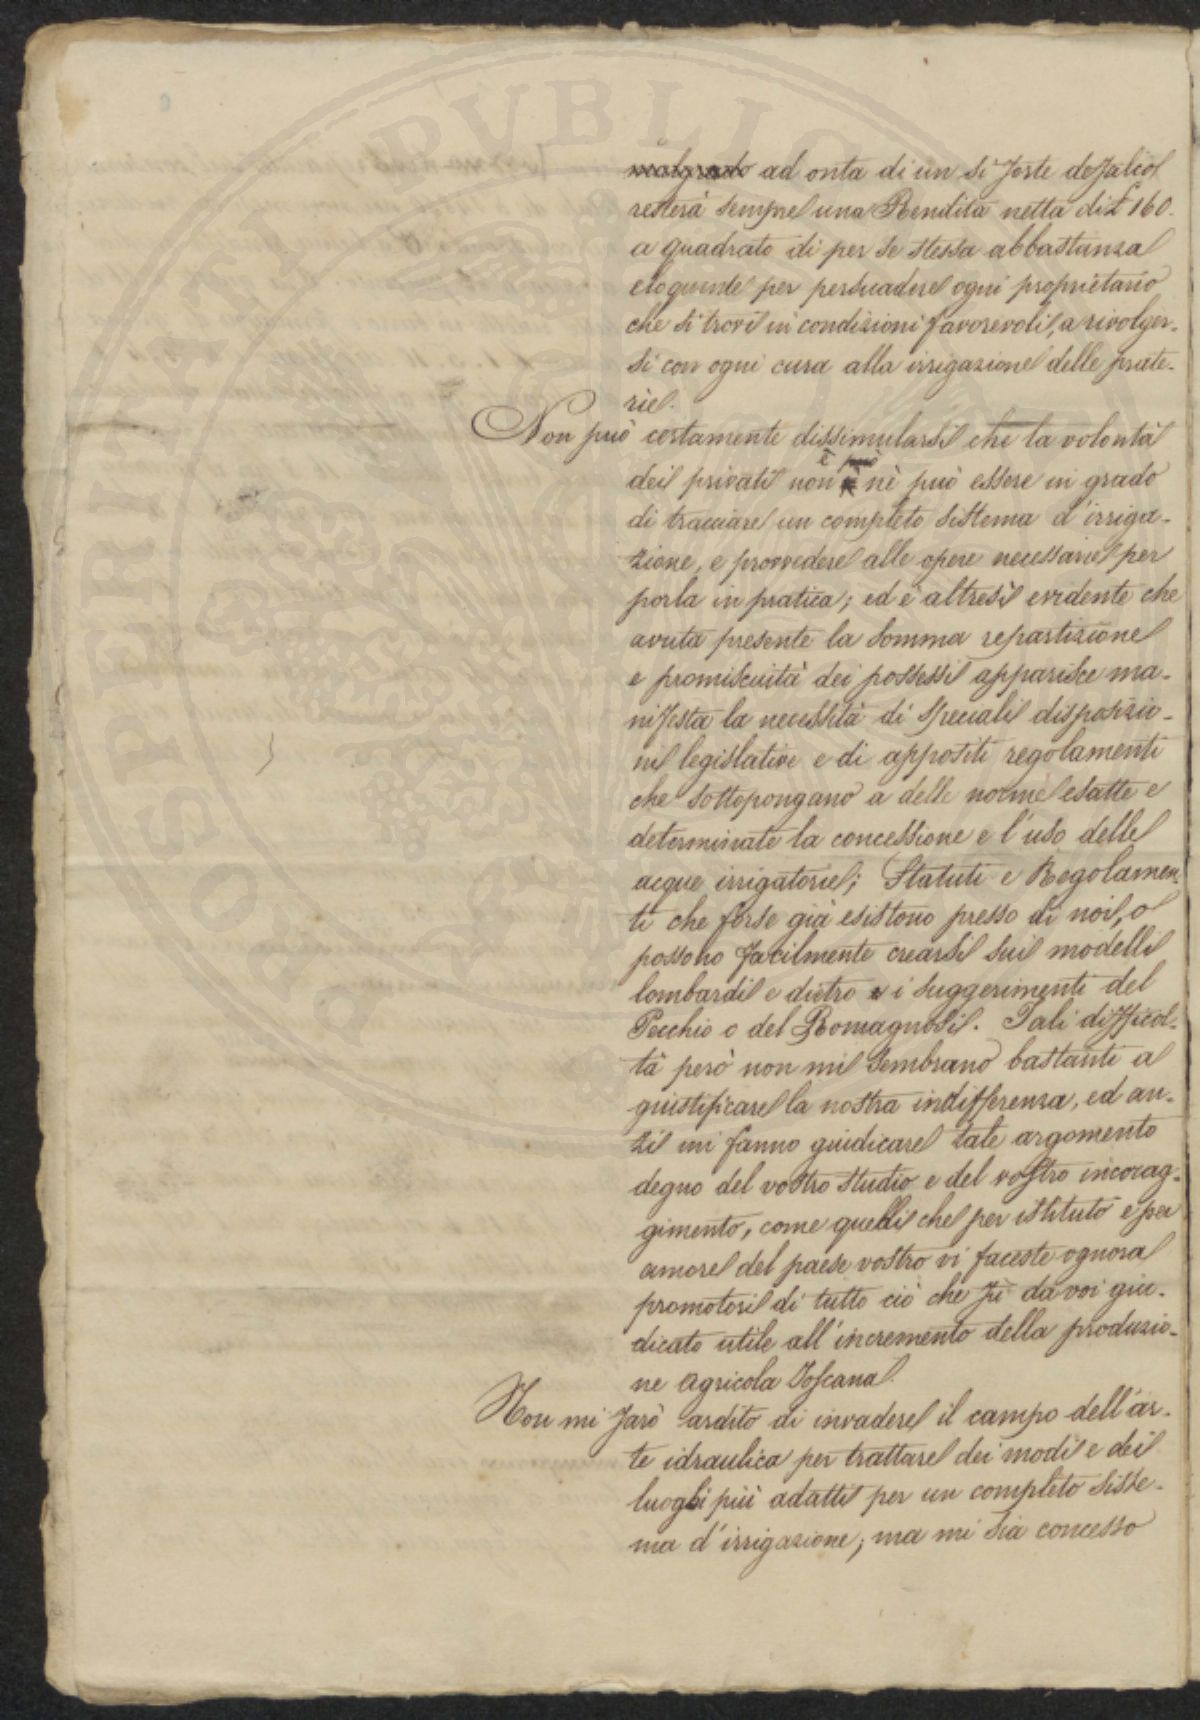 malgrado ad onta di un si forte defalico
resterà sempre una Rendita netta di £ 160.
a quadrato di per se stessa abbastanza
eloquente per persuadere ogni proprietario
che si trovi in condizioni favorevoli, a rivolger-
si con ogni cura alla irrigazione delle prate-
rie.
Non può certamente dissimularsi che la volontà
dei privati non è nè può essere in grado
di tracciare un completo sistema d'irriga-
zione, e provvedere alle opere necessarie per
porla in pratica; ed è altresì evidente che
avuta presente la somma repartizione
e promiscuità dei possessi apparisce ma-
nifesta la necessità di speciali disposizio-
ni legislative e di appositi regolamenti
che sottopongano a delle norme esatte e
determinate la concessione e l'uso delle
acque irrigatorie; Statuti e Regolamen-
ti che forse già esistono presso di noi, o
possono facilmente crearsi sui modelli
lombardi e dietro i suggerimenti del
Pecchio o del Romagnosi. Tali difficol-
tà però non mi sembrano bastanti a
giustificare la nostra indifferenza, ed an-
zi mi fanno giudicare tale argomento
degno del vostro studio e del vostro incorag-
gimento, come quelli che per istituto e per
amore del paese vostro vi faceste ognora
promotori di tutto ciò che fù da voi giu-
dicato utile all'incremento della produzio-
ne agricola Toscana.
Non mi farò ardito di invadere il campo dell'ar-
te idraulica per trattare dei modi e dei
luoghi più adatti per un completo siste-
ma d'irrigazione; ma mi sia concesso
PROSPERITATI PUBLICAE